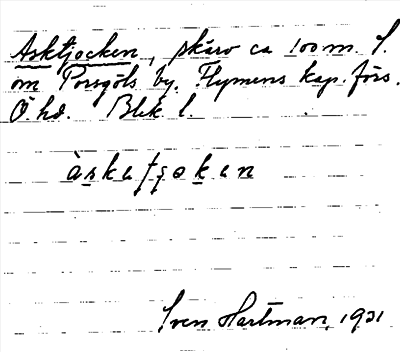 Asktjocken, skärv ca 100 m. S.
om Porsgöls by. Flymens kap. förs.
Ö. hd. Blek. l.
àskatjoken
Sven Hartman, 1931